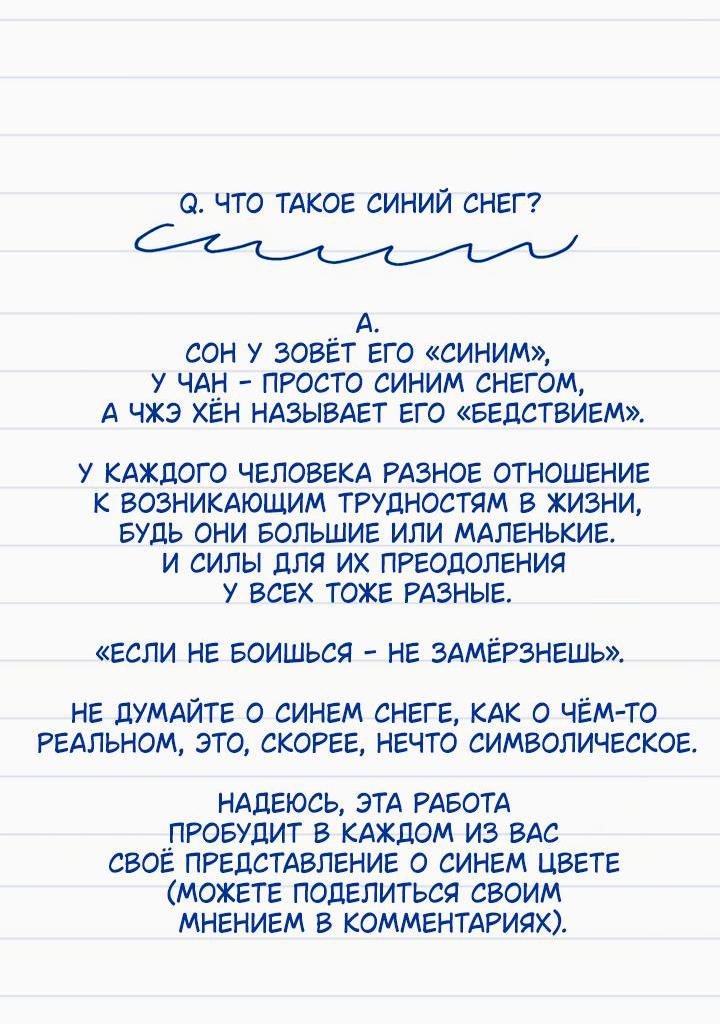 Q. ЧТО ТАКОЕ СИНИЙ СНЕГ?
А.
СОН У ЗОВЁТ ЕГО «СИНИМ»,
У ЧАН - ПРОСТО СИНИМ СНЕГОМ,
А ЧЖЭ ХЁН НАЗЫВАЕТ ЕГО «БЕДСТВИЕМ».
У КАЖДОГО ЧЕЛОВЕКА РАЗНОЕ ОТНОШЕНИЕ
К ВОЗНИКАЮЩИМ ТРУДНОСТЯМ В ЖИЗНИ,
БУДЬ ОНИ БОЛЬШИЕ ИЛИ МАЛЕНЬКИЕ.
И СИЛЫ ДЛЯ ИХ ПРЕОДОЛЕНИЯ
У ВСЕХ ТОЖЕ РАЗНЫЕ.
«ЕСЛИ НЕ БОИШЬСЯ - НЕ ЗАМЁРЗНЕШЬ».
НЕ ДУМАЙТЕ О СИНЕМ СНЕГЕ, КАК О ЧЁМ-ТО
РЕАЛЬНОМ, ЭТО, СКОРЕЕ, НЕЧТО СИМВОЛИЧЕСКОЕ.
НАДЕЮСЬ, ЭТА РАБОТА
ПРОБУДИТ В КАЖДОМ ИЗ ВАС
СВОЁ ПРЕДСТАВЛЕНИЕ О СИНЕМ ЦВЕТЕ
(МОЖЕТЕ ПОДЕЛИТЬСЯ СВОИМ
МНЕНИЕМ В КОММЕНТАРИЯХ).